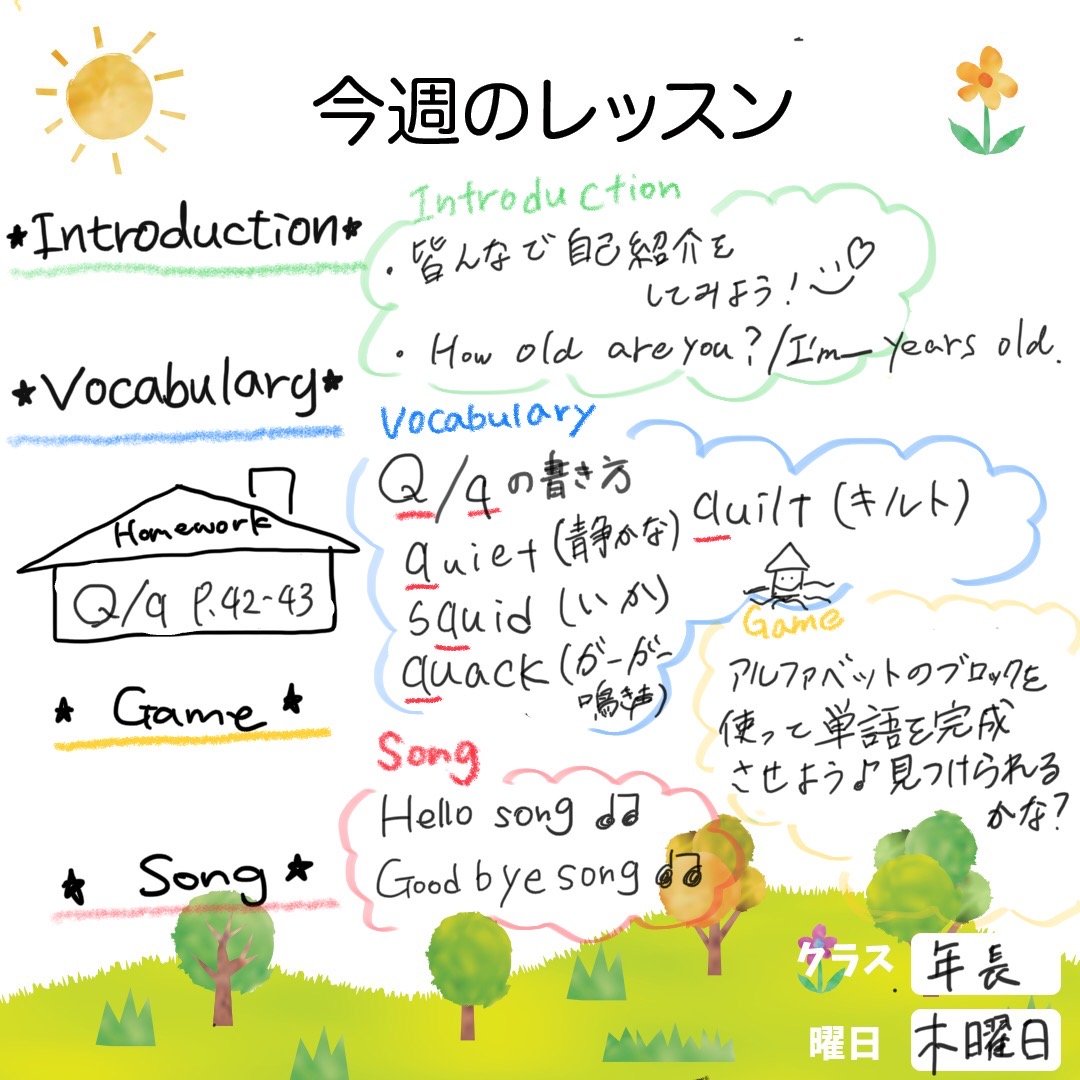 今週のレッスン
★Introduction★
Introduction
・皆んなで自己紹介を
してみよう!
・How old are you?/I'm_years old.
★Vocabulary★
Vocabulary
Q/qの書き方
quiet(静かな)
quilt(キルト)
squid(いか)
quack(ガーガー
鳴き声)
Homework
Q/q P.42-43
★ Game ★
Game
アルファベットのブロックを
使って単語を完成
させよう♪見つけられる
かな?
★ Song ★
Song
Hello song ♫
Good bye song ♫
クラス 年長
曜日 木曜日